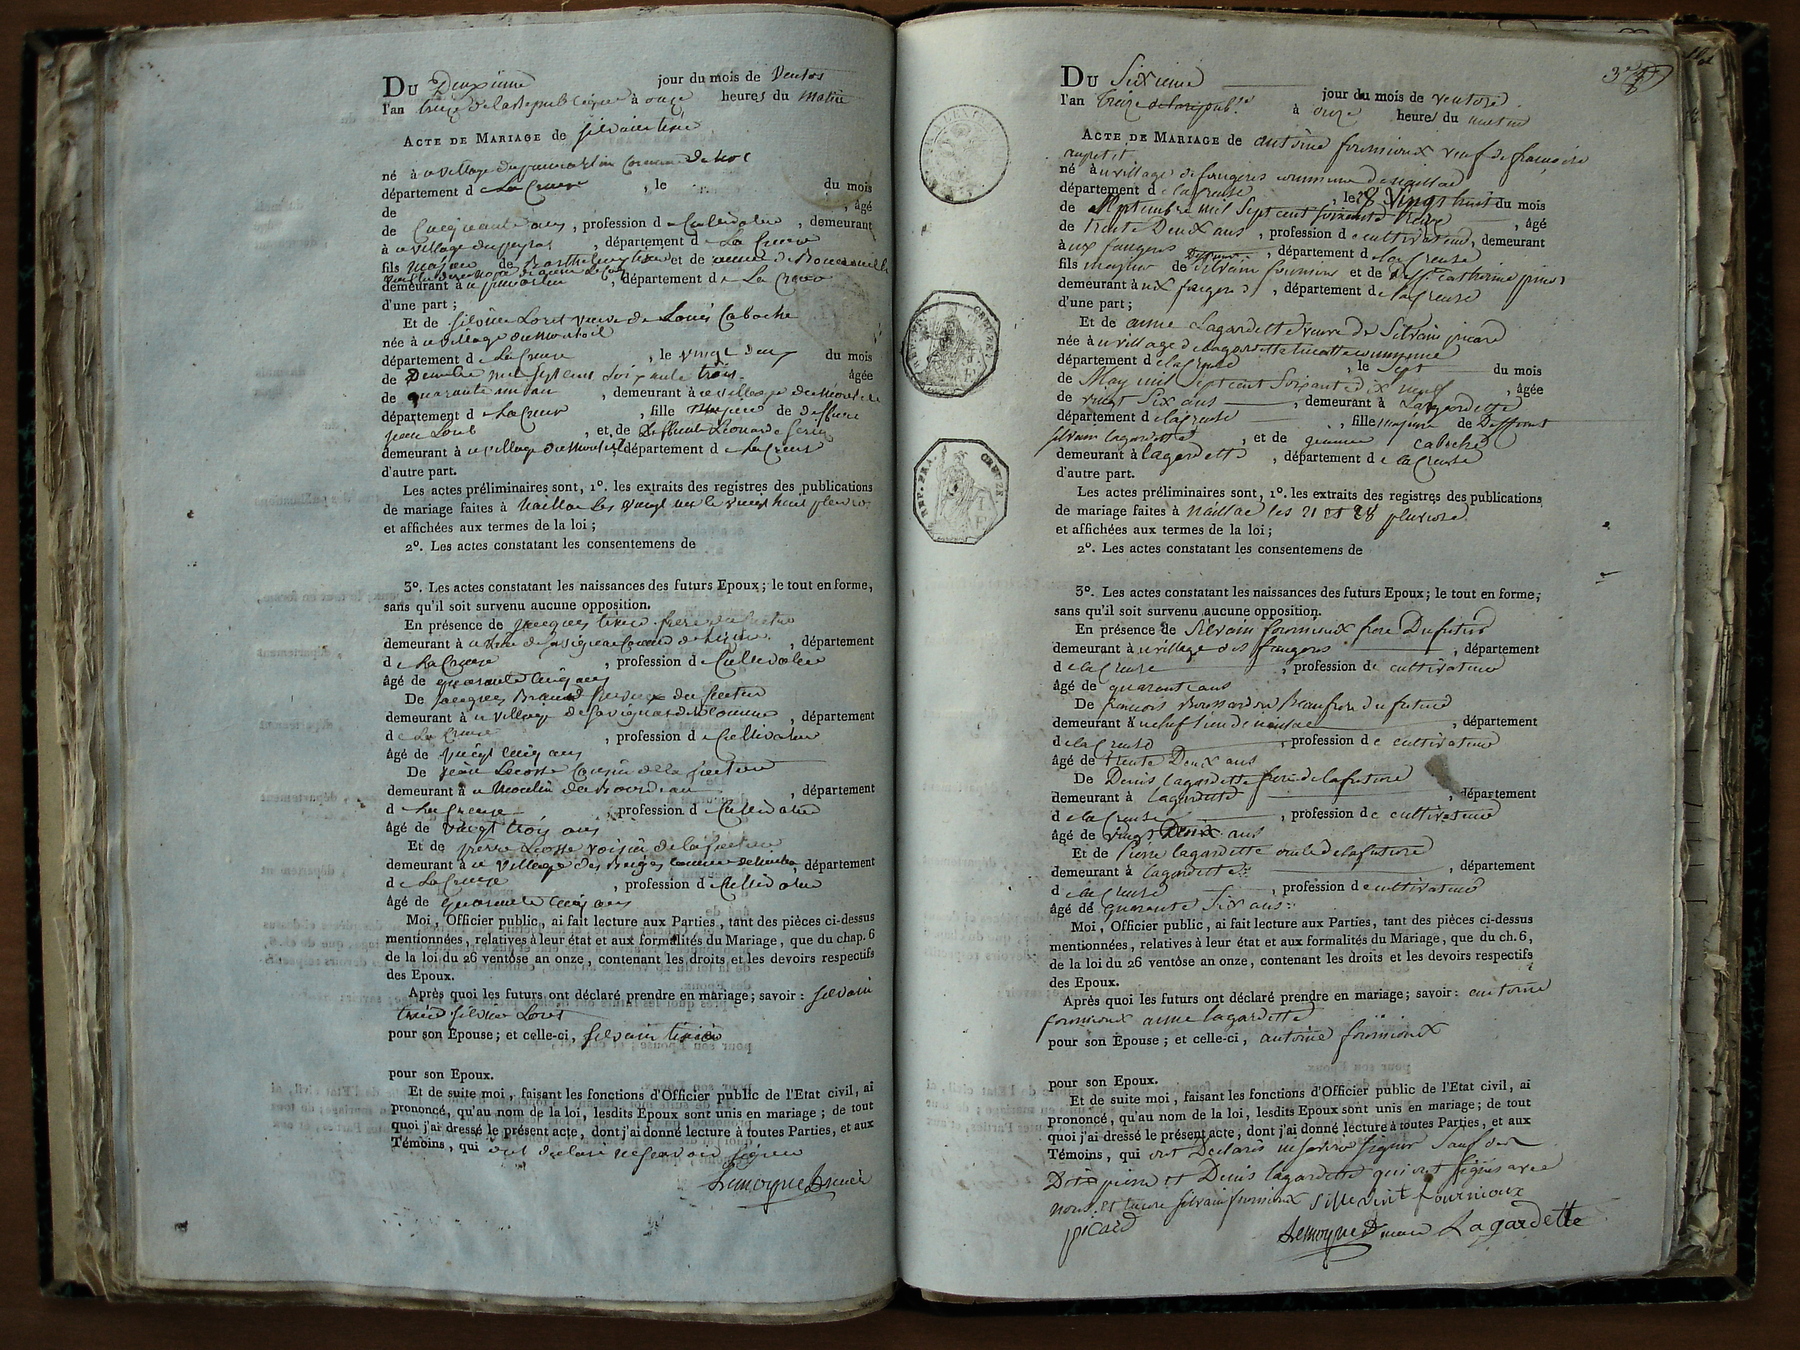 DU Deuxième jour du mois de Ventos
l'an treize de la Republique à onze heures du matin
ACTE DE MARIAGE de silvain
né à u village commune de
département d e La Creuse , le du mois
de , âgé
de Cinquante ans , profession d e Cultivateur , demeurant
à u village du peyrat , département d e La Creuse
fils majeur de Barthelemy et de
demeurant à u , département d e La Creuse
d'une part ;
Et de silvine Loret veuve de Louis Caboche
née à u village du
département d e La Creuse , le vingt deux du mois
de Decembre mil sept cent soixante trois âgée
de quarante un an , demeurant à u village du
département d e La Creuse , fille majeure de deffunt
jean Loret , et de deffunte Léonarde
demeurant à u village du département d e La Creuse
d'autre part.
Les actes préliminaires sont, 1°. les extraits des registres des publications
de mariage faites à Naillat les vingt un le vingt huit pluvios
et affichées aux termes de la loi ;
2°. Les actes constatant les consentemens de
3°. Les actes constatant les naissances des futurs Epoux ; le tout en forme,
sans qu'il soit survenu aucune opposition.
En présence de jacques frère du futur
demeurant à u , département
d e La Creuse , profession d e Cultivateur
âgé de quarante cinq ans
De jacques du futur
demeurant à u village de savignat , département
d e La Creuse , profession d e Cultivateur
âgé de vingt cinq ans
De jean Lecosse Cousin de la future
demeurant à u Moulin de Bourdeau , département
d e La Creuse , profession d e Cultivateur
âgé de vingt trois ans
Et de pierre Lecosse voisin de la future
demeurant à u village des commune de , département
d e La Creuse , profession d e Cultivateur
âgé de quarante cinq ans
Moi, Officier public, ai fait lecture aux Parties, tant des pièces ci-dessus
mentionnées, relatives à leur état et aux formalités du Mariage, que du chap. 6
de la loi du 26 ventôse an onze, contenant les droits et les devoirs respectifs
des Epoux.
Après quoi les futurs ont déclaré prendre en mariage ; savoir : silvain
silvine Loret
pour son Epouse ; et celle-ci, silvain
pour son Epoux.
Et de suite moi, faisant les fonctions d'Officier public de l'Etat civil, ai
prononcé, qu'au nom de la loi, lesdits Epoux sont unis en mariage ; de tout
quoi j'ai dressé le présent acte, dont j'ai donné lecture à toutes Parties, et aux
Témoins, qui ont déclaré ne savoir signer
Lemoyne
DU Sixieme jour du mois de ventose
l'an treize de la repub.e à onze heures du matin
ACTE DE MARIAGE de antoine fournioux veuf de françoise
né à u village de faugeres commune de naillat
département d e la Creuse , le 28 Vingt huit du mois
de Septembre mil Sept cent soixante treize , âgé
de trente Deux ans , profession d e cultivateur, demeurant
à ux faugeres , département d e la Creuse
fils majeur de Deffunt silvain fournioux et de deff.te catherine
demeurant à ux faugeres , département d e la Creuse
d'une part ;
Et de anne Lagardette veuve de Silvain picard
née à u village de lagardette commune
département d e la Creuse , le Sept du mois
de May mil Sept cent Soixante dix neuf , âgée
de vingt Six ans , demeurant à Lagardette
département d e la Creuse , fille majeure de Deffunt
silvain lagardette , et de jeanne caboche
demeurant à lagardette , département d e la Creuse
d'autre part.
Les actes préliminaires sont, 1°. les extraits des registres des publications
de mariage faites à naillac les 21 et 28 pluviose
et affichées aux termes de la loi ;
2°. Les actes constatant les consentemens de
3°. Les actes constatant les naissances des futurs Epoux ; le tout en forme,
sans qu'il soit survenu aucune opposition.
En présence de Silvain fournioux frere Du futur
demeurant à u village des faugeres , département
d e la Creuse , profession d e cultivateur
âgé de quarante ans
De francois beaufrere du futur
demeurant à u chef lieu de naillac , département
d e la Creuse , profession d e cultivateur
âgé de trente Deux ans
De Denis lagardette frere de la future
demeurant à Lagardette , département
d e la Creuse , profession d e cultivateur
âgé de vingt Deux ans
Et de Pierre lagardette oncle de la future
demeurant à lagardette , département
d e la Creuse , profession d e cultivateur
âgé de quarante Six ans
Moi, Officier public, ai fait lecture aux Parties, tant des pièces ci-dessus
mentionnées, relatives à leur état et aux formalités du Mariage, que du ch. 6,
de la loi du 26 ventôse an onze, contenant les droits et les devoirs respectifs
des Epoux.
Après quoi les futurs ont déclaré prendre en mariage ; savoir : antoine
fournioux anne lagardette
pour son Epouse ; et celle-ci, antoine fournioux
pour son Epoux.
Et de suite moi, faisant les fonctions d'Officier public de l'Etat civil, ai
prononcé, qu'au nom de la loi, lesdits Epoux sont unis en mariage ; de tout
quoi j'ai dressé le présent acte, dont j'ai donné lecture à toutes Parties, et aux
Témoins, qui ont Declarés ne savoir signer Sauf
Dits pierre et Denis lagardette qui ont signés avec
nous et encore silvain fournioux fournioux
picard Lemoyne maire Lagardette
REP. FRA. CREUZE